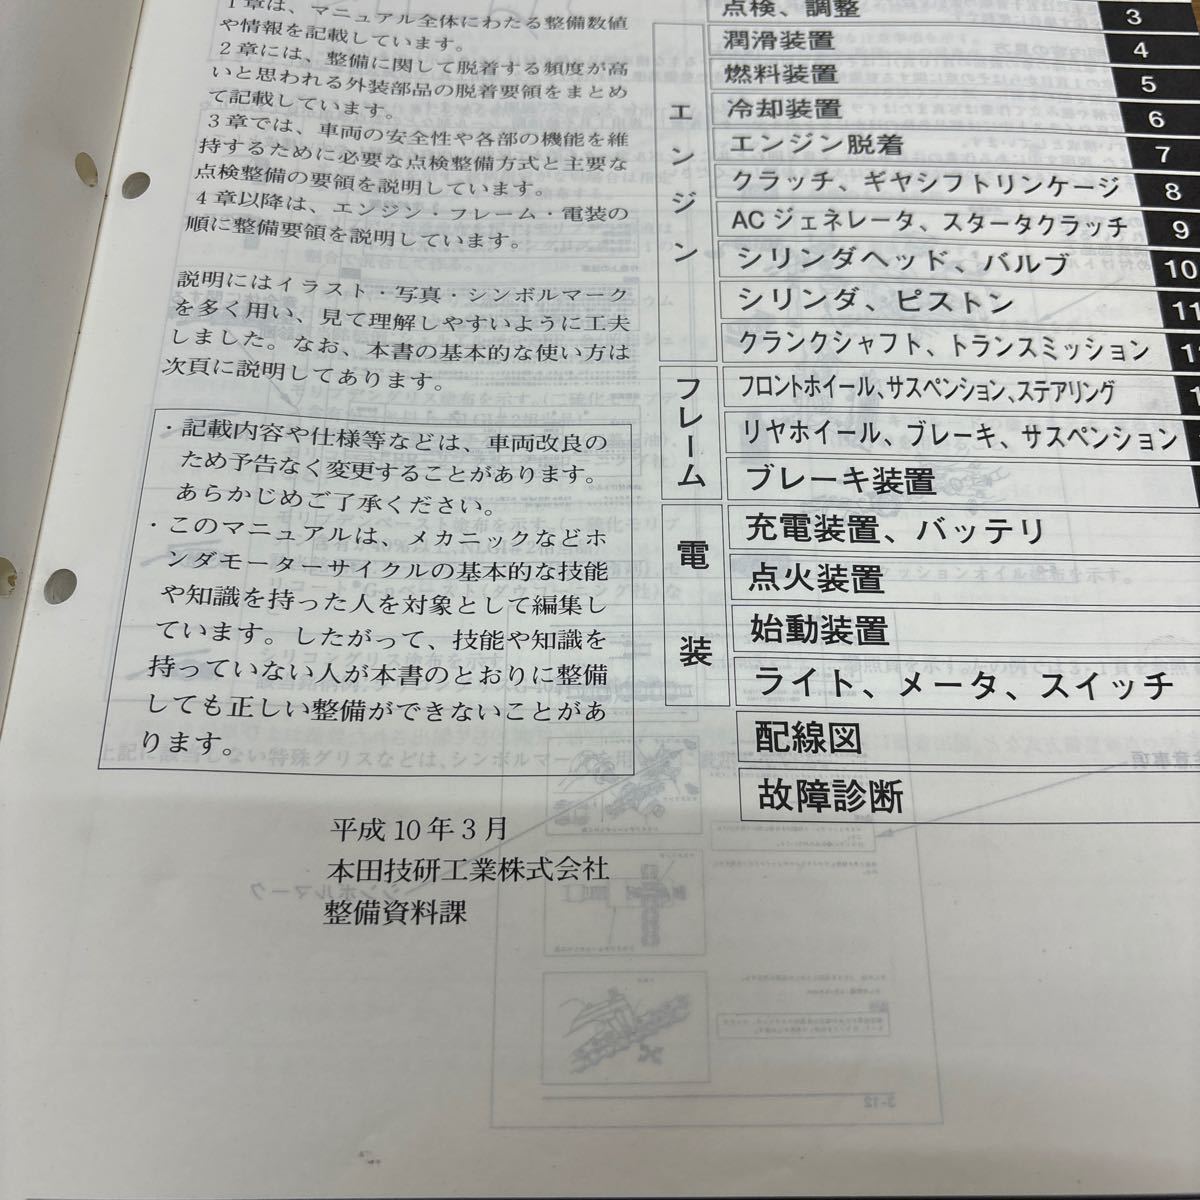 1章は、マニュアル全体にわたる整備数値
や情報を記載しています。
2章には、整備に関して脱着する頻度が高
いと思われる外装部品の脱着要領をまとめ
て記載しています。
3章では、車両の安全性や各部の機能を維
持するために必要な点検整備方式と主要な
点検整備の要領を説明しています。
4章以降は、エンジン・フレーム・電装の
順に整備要領を説明しています。
説明にはイラスト・写真・シンボルマーク
を多く用い、見て理解しやすいように工夫
しました。なお、本書の基本的な使い方は
次頁に説明してあります。
・記載内容や仕様等などは、車両改良の
ため予告なく変更することがあります。
あらかじめご了承ください。
・このマニュアルは、メカニックなどホ
ンダモーターサイクルの基本的な技能
や知識を持った人を対象として編集し
ています。したがって、技能や知識を
持っていない人が本書のとおりに整備
しても正しい整備ができないことがあ
ります。
平成10年3月
本田技研工業株式会社
整備資料課
点検、調整 3
エンジン
潤滑装置 4
燃料装置 5
冷却装置 6
エンジン脱着 7
クラッチ、ギヤシフトリンケージ 8
ACジェネレータ、スタータクラッチ 9
シリンダヘッド、バルブ 10
シリンダ、ピストン 11
クランクシャフト、トランスミッション
フレーム
フロントホイール、サスペンション、ステアリング
リヤホイール、ブレーキ、サスペンション
ブレーキ装置
電装
充電装置、バッテリ
点火装置
始動装置
ライト、メータ、スイッチ
配線図
故障診断